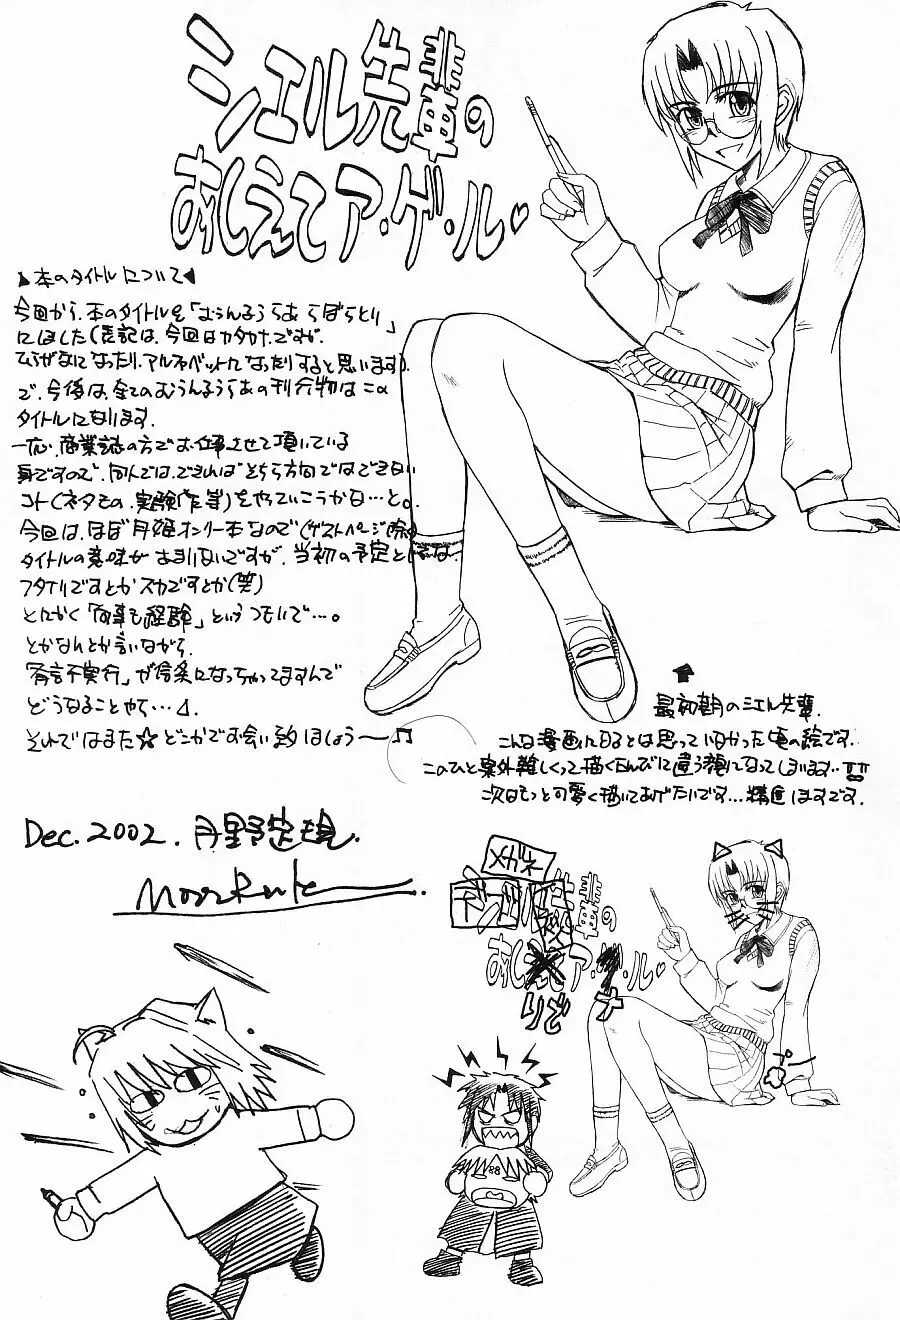 シエル先輩の
おしえてア・ゲ・ル♡
本のタイトルについて
今回から、本のタイトルを「むうんるうらあ らぼらとり」
にしました(表記は、今回はカタカナ、ですが、
ひらがなになったり、アルファベットになったりすると思います)。
で、今後は、全てのむうんるうらあの刊行物はこの
タイトルになります。
一応、商業誌の方でお仕事させて頂いている
身ですので、同人では、できればそちら方向ではできない
コト(ネタとの、実験作等)をやっていこうかな…と。
今回は、ほぼ月姫オンリー本なので(ゲストページ除く)
タイトルの意味があまりないですが、当初の予定としては、
フタナリですとかスカですとか(笑)
とにかく「何事も経験」というつもりで…。
とかなんとか言いながら、
「有言不実行」が信条になっちゃってますんで
どうなることやら…⊿.
それではまた☆どこかでお会い致しましょう〜♫
最初期のシエル先輩。
こんな漫画になるとは思っていなかった頃の絵です。
このひと案外難しくって描くたんびに違う顔になってしまいます…!!
次はもっと可愛く描いてあげたいです…精進しますです。
Dec.2002. 月野定規.
メガネ
先輩の
おし
ア・
・ル♡
りぞ
ナ
プー
88